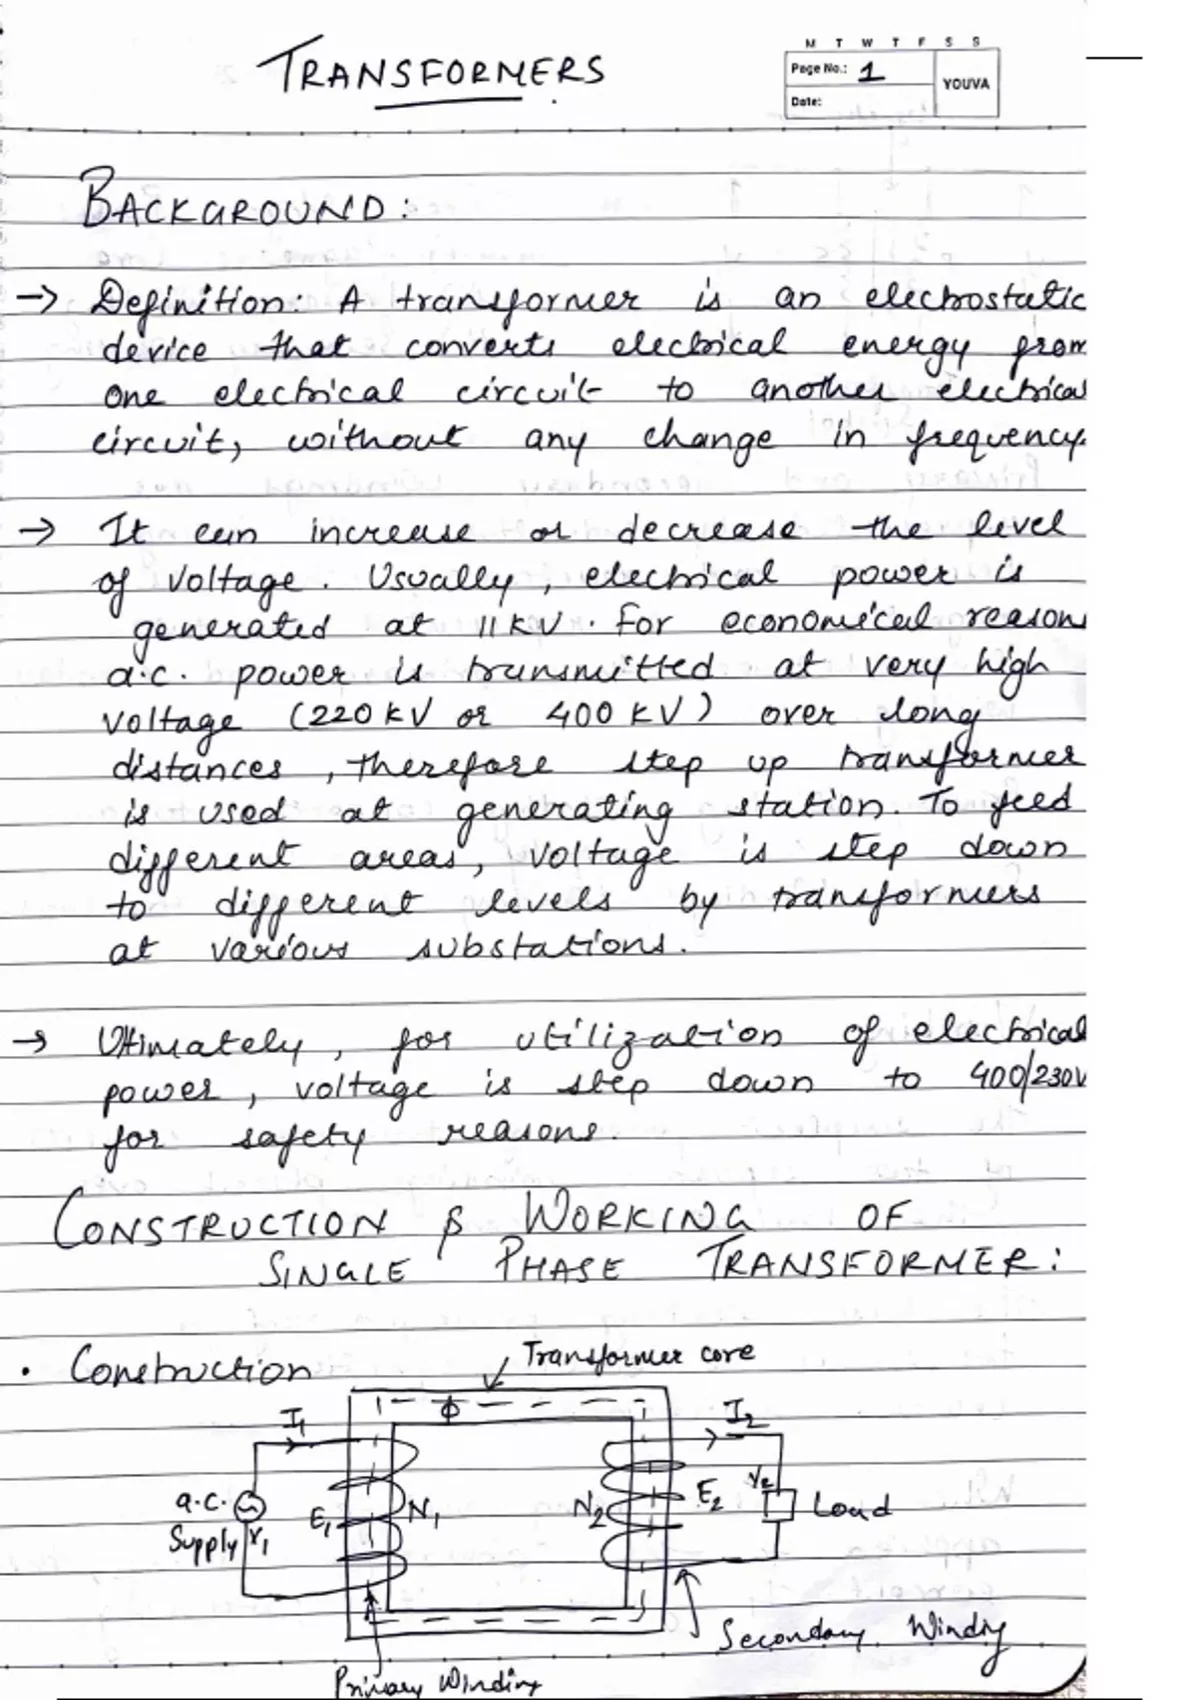 TRANSFORMERS
M T W T F S S
Page No.: 1
YOUVA
Date:
BACKGROUND:
→ Definition: A transformer is an electrostatic
device that converts electrical energy from
one electrical circuit to another electrical
circuit, without any change in frequency.
→ It can increase or decrease the level
of voltage. Usually, electrical power is
generated at 11KV. For economical reasons
a.c. power is transmitted at very high
voltage (220KV or 400KV) over long
distances, therefore step up transformer
is used at generating station. To feed
different areas, voltage is step down
to different levels by transformers
at various substations.
→ Ultimately, for utilization of electrical
power, voltage is step down to 400/230V
for safety reasons.
CONSTRUCTION & WORKING OF
SINGLE PHASE TRANSFORMER:
• Construction
Transformer core
I1
Φ
I2
a.c.
Supply
V1
E1
N1
N2
E2
V2
Load
Secondary Winding
Primary Winding